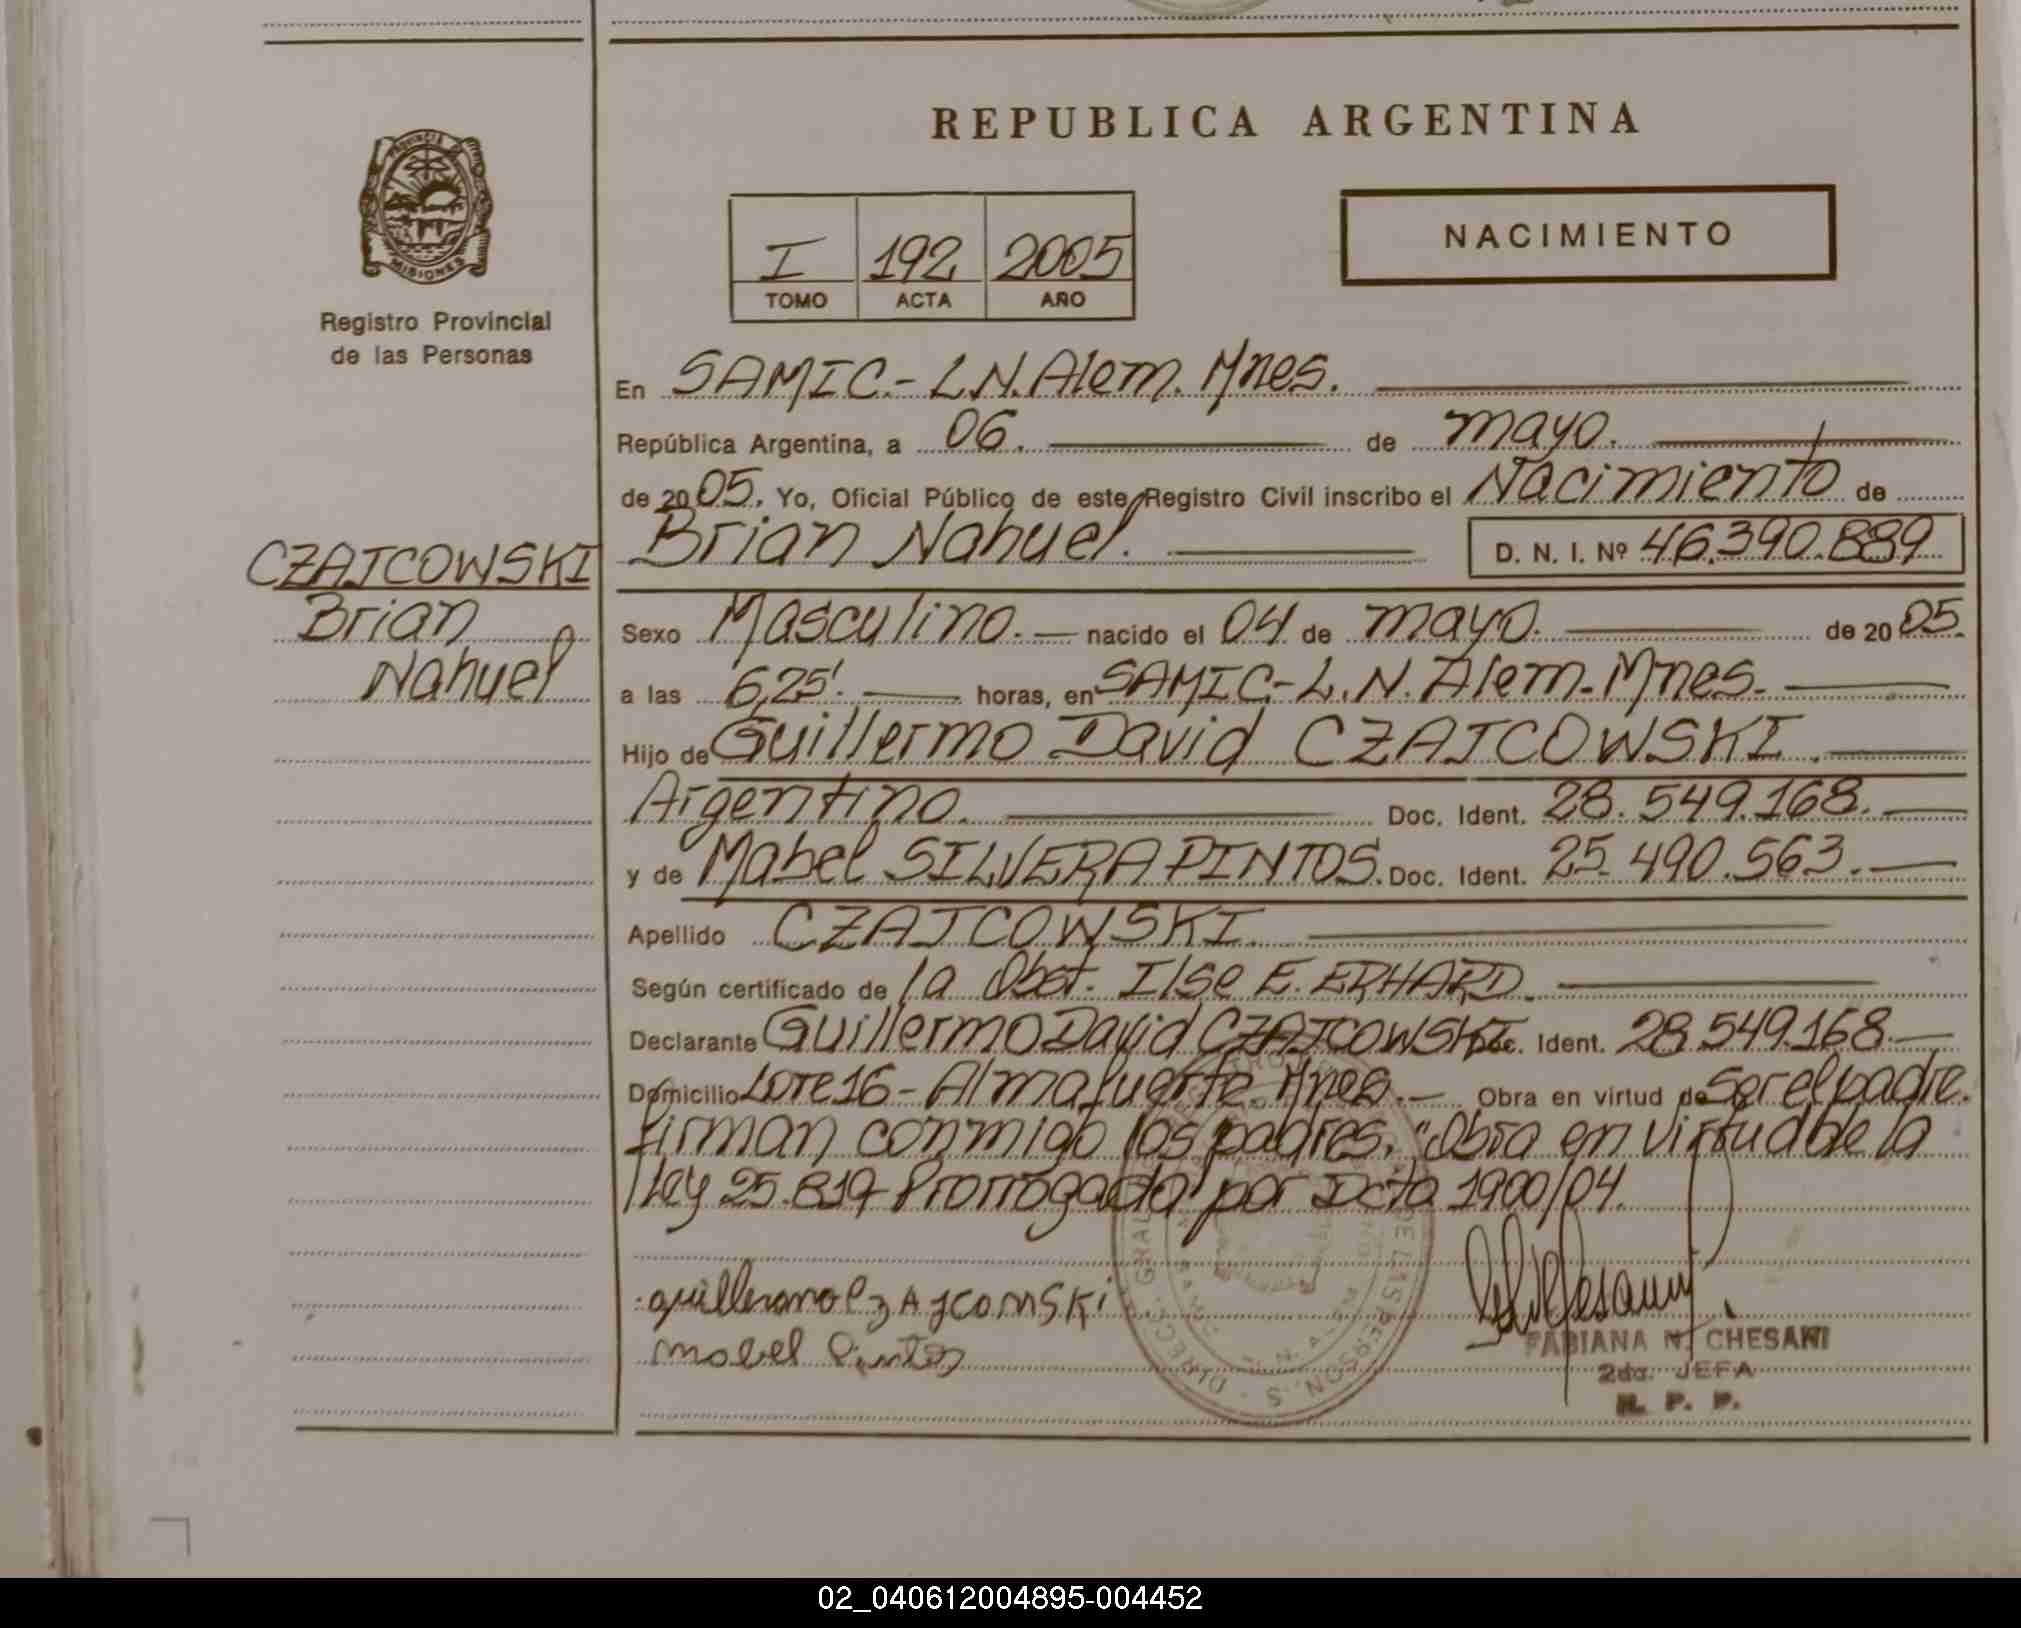 REPUBLICA ARGENTINA
PROVINCIA DE
MISIONES
Registro Provincial
de las Personas
I 192 2005
TOMO ACTA AÑO
NACIMIENTO
En SAMIC.- L.N.Alem. Mnes.
República Argentina, a 06. de mayo.
de 2005. Yo, Oficial Público de este Registro Civil inscribo el Nacimiento de
Brian Nahuel. D. N. I. Nº 46.390.889
CZAJCOWSKI
Brian
Nahuel
Sexo Masculino. nacido el 04 de mayo. de 2005.
a las 6,25'. horas, en SAMIC-L.N.Alem.Mnes.
Hijo de Guillermo David CZAJCOWSKI.
Argentino. Doc. Ident. 28.549.168.
y de Mabel SILVERA PINTOS. Doc. Ident. 25.490.563.
Apellido CZAJCOWSKI.
Según certificado de la Obst. Ilse E. ERHARD.
Declarante Guillermo David CZAJCOWSKI Doc. Ident. 28.549.168.
Domicilio Lote 16 - Almafuerte. Mnes. Obra en virtud de ser el padre.
firman conmigo los padres. "Obra en virtud de la
Ley 25.819 Prorrogada por Dcto 1900/04.
guillermo CzAJCOWSKi
mabel Pintos
FABIANA N. CHESANI
2da. JEFA
R. P. P.
02_040612004895-004452